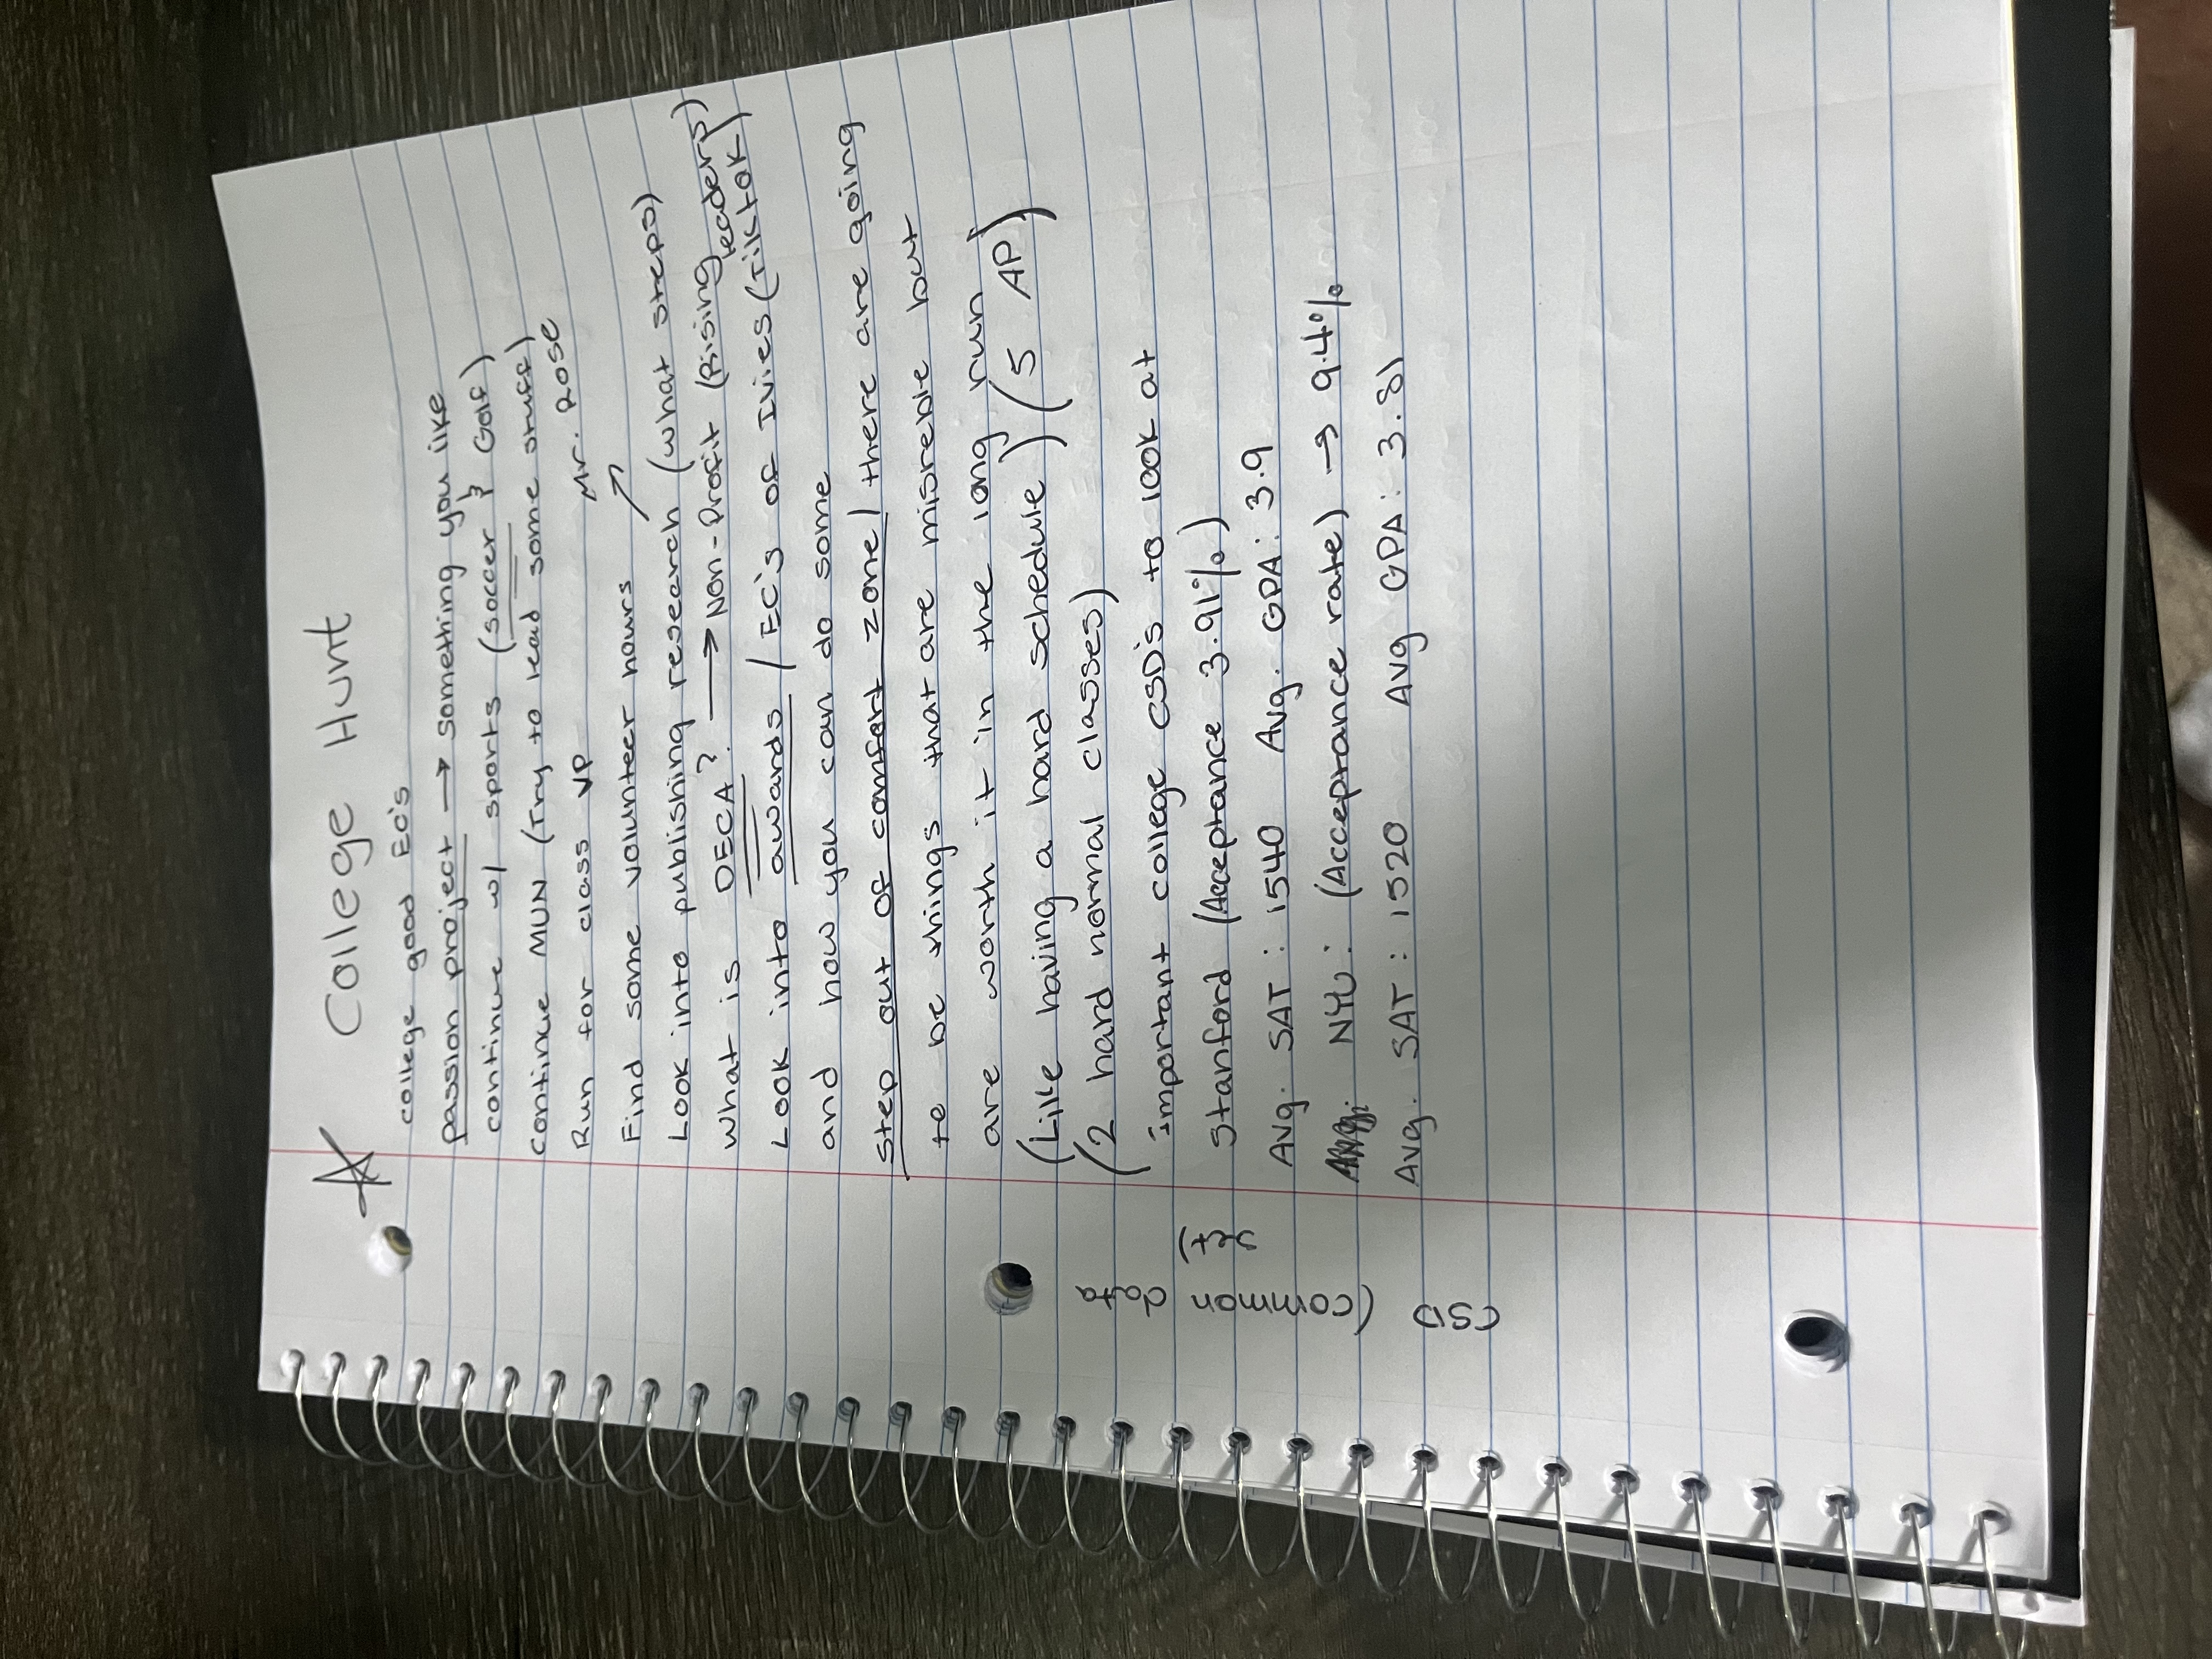 ☆ College Hunt
college good EC's
passion project → something you like
continue w/ sports (soccer & Golf)
continue MUN (Try to lead some stuff)
Run for class VP
Mr. Rose
Find some volunteer hours ↗
Look into publishing research (what steps)
What is DECA? → Non-Profit (Rising Leaders)
Look into awards / EC's of Ivies (Tiktok)
and how you can do some
step out of comfort zone / there are going
to be things that are misreble but
are worth it in the long run
(Like having a hard schedule) (5 AP)
(2 hard normal classes)
important college CSD's to look at
Stanford (Acceptance 3.91%)
Avg. SAT: 1540 Avg. GPA: 3.9
NYU: (Acceptance rate) → 9.4%
Avg. SAT: 1520 Avg GPA: 3.81
CSD
(common data
set)